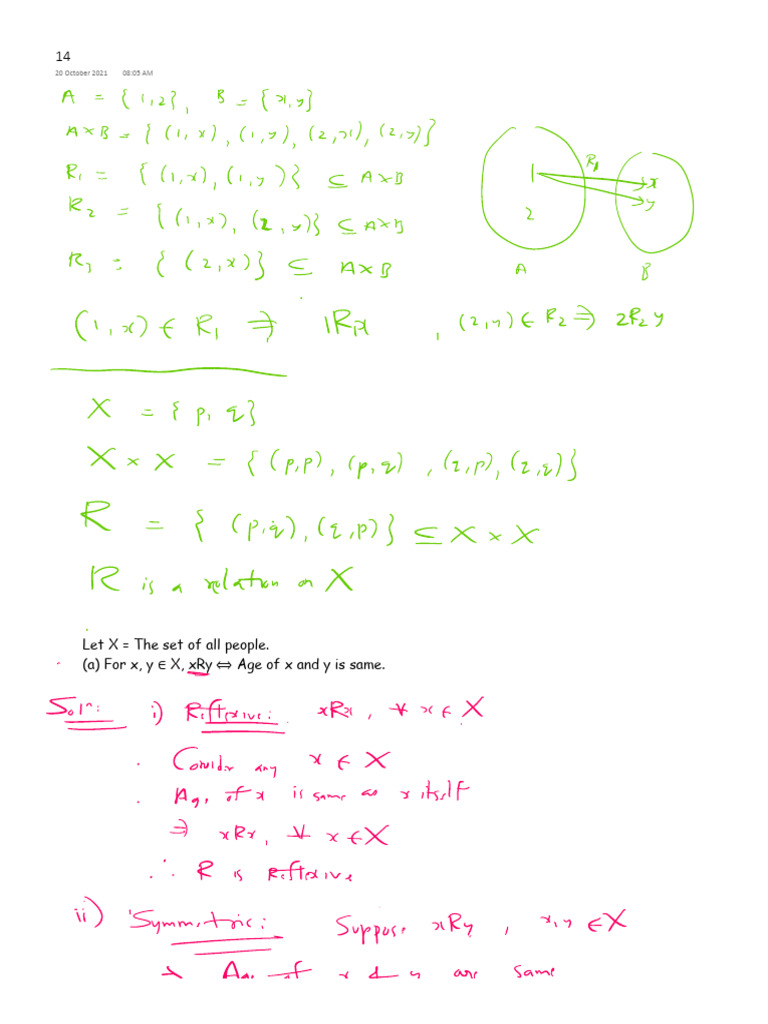 14
20 October 2021 08:05 AM
A = {1,2}, B = {x,y}
A×B = {(1,x), (1,y), (2,x), (2,y)}
R₁ = {(1,x), (1,y)} ⊆ A×B
R₂ = {(1,x), (2,y)} ⊆ A×B
R₃ = {(2,x)} ⊆ A×B
R₁
1 x
2 y
A B
(1,x) ∈ R₁ ⇒ 1R₁x , (2,y) ∈ R₂ ⇒ 2R₂y
X = {p, q}
X × X = {(p,p), (p,q), (q,p), (q,q)}
R = {(p,q), (q,p)} ⊆ X × X
R is a relation on X
Let X = The set of all people.
(a) For x, y ∈ X, xRy ⇔ Age of x and y is same.
Solⁿ: i) Reflexive: xRx, ∀ x ∈ X
Consider any x ∈ X
Age of x is same as x itself
⇒ xRx, ∀ x ∈ X
∴ R is Reflexive
ii) Symmetric: Suppose xRy, x,y ∈ X
⇒ Age of x & y are same